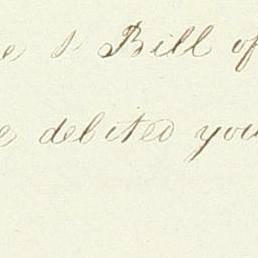 e & Bill of
e debited you